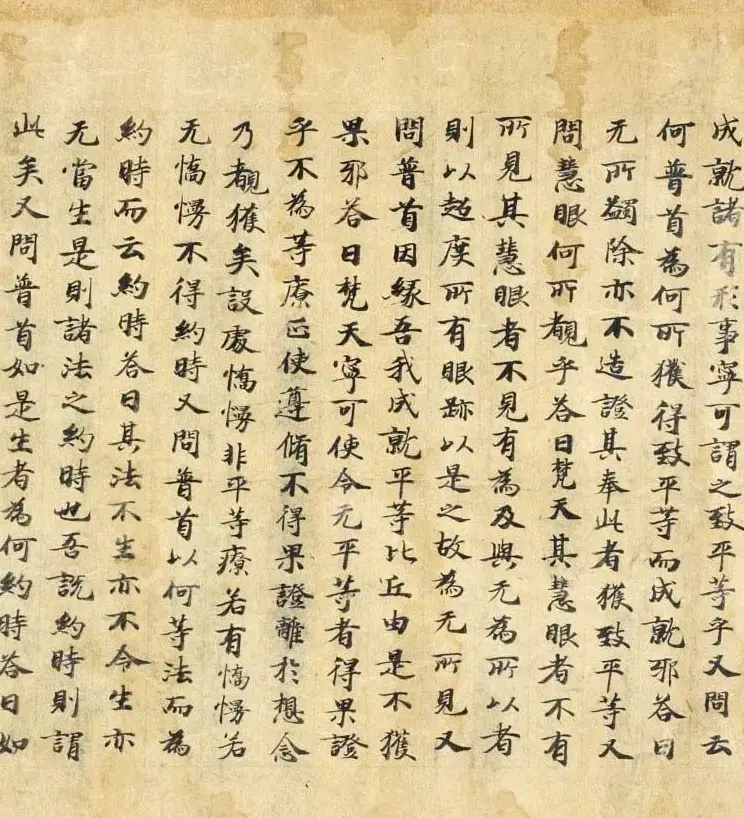 成就諸有形事寧可謂之致平等乎又問云
何普首為何所獲得致平等而成就邪荅曰
无所蠲除亦不造證其奉此者獲致平等又
問慧眼何所覩乎荅曰梵天其慧眼者不有
所見其慧眼者不見有為及與无為所以者
則以超度所有眼跡以是之故為无所見又
問普首因緣吾我成就平等比丘由是不獲
果邪荅曰梵天寧可使令无平等者得果證
乎不為等療正使遵脩不得果證離於想念
乃覩獲矣設處憍慢非平等療若有憍慢若
无憍慢不得約時又問普首以何等法而為
約時而云約時荅曰其法不生亦不令生亦
无當生是則諸法之約時也吾說約時則謂
此矣又問普首如是生者為何約時荅曰如